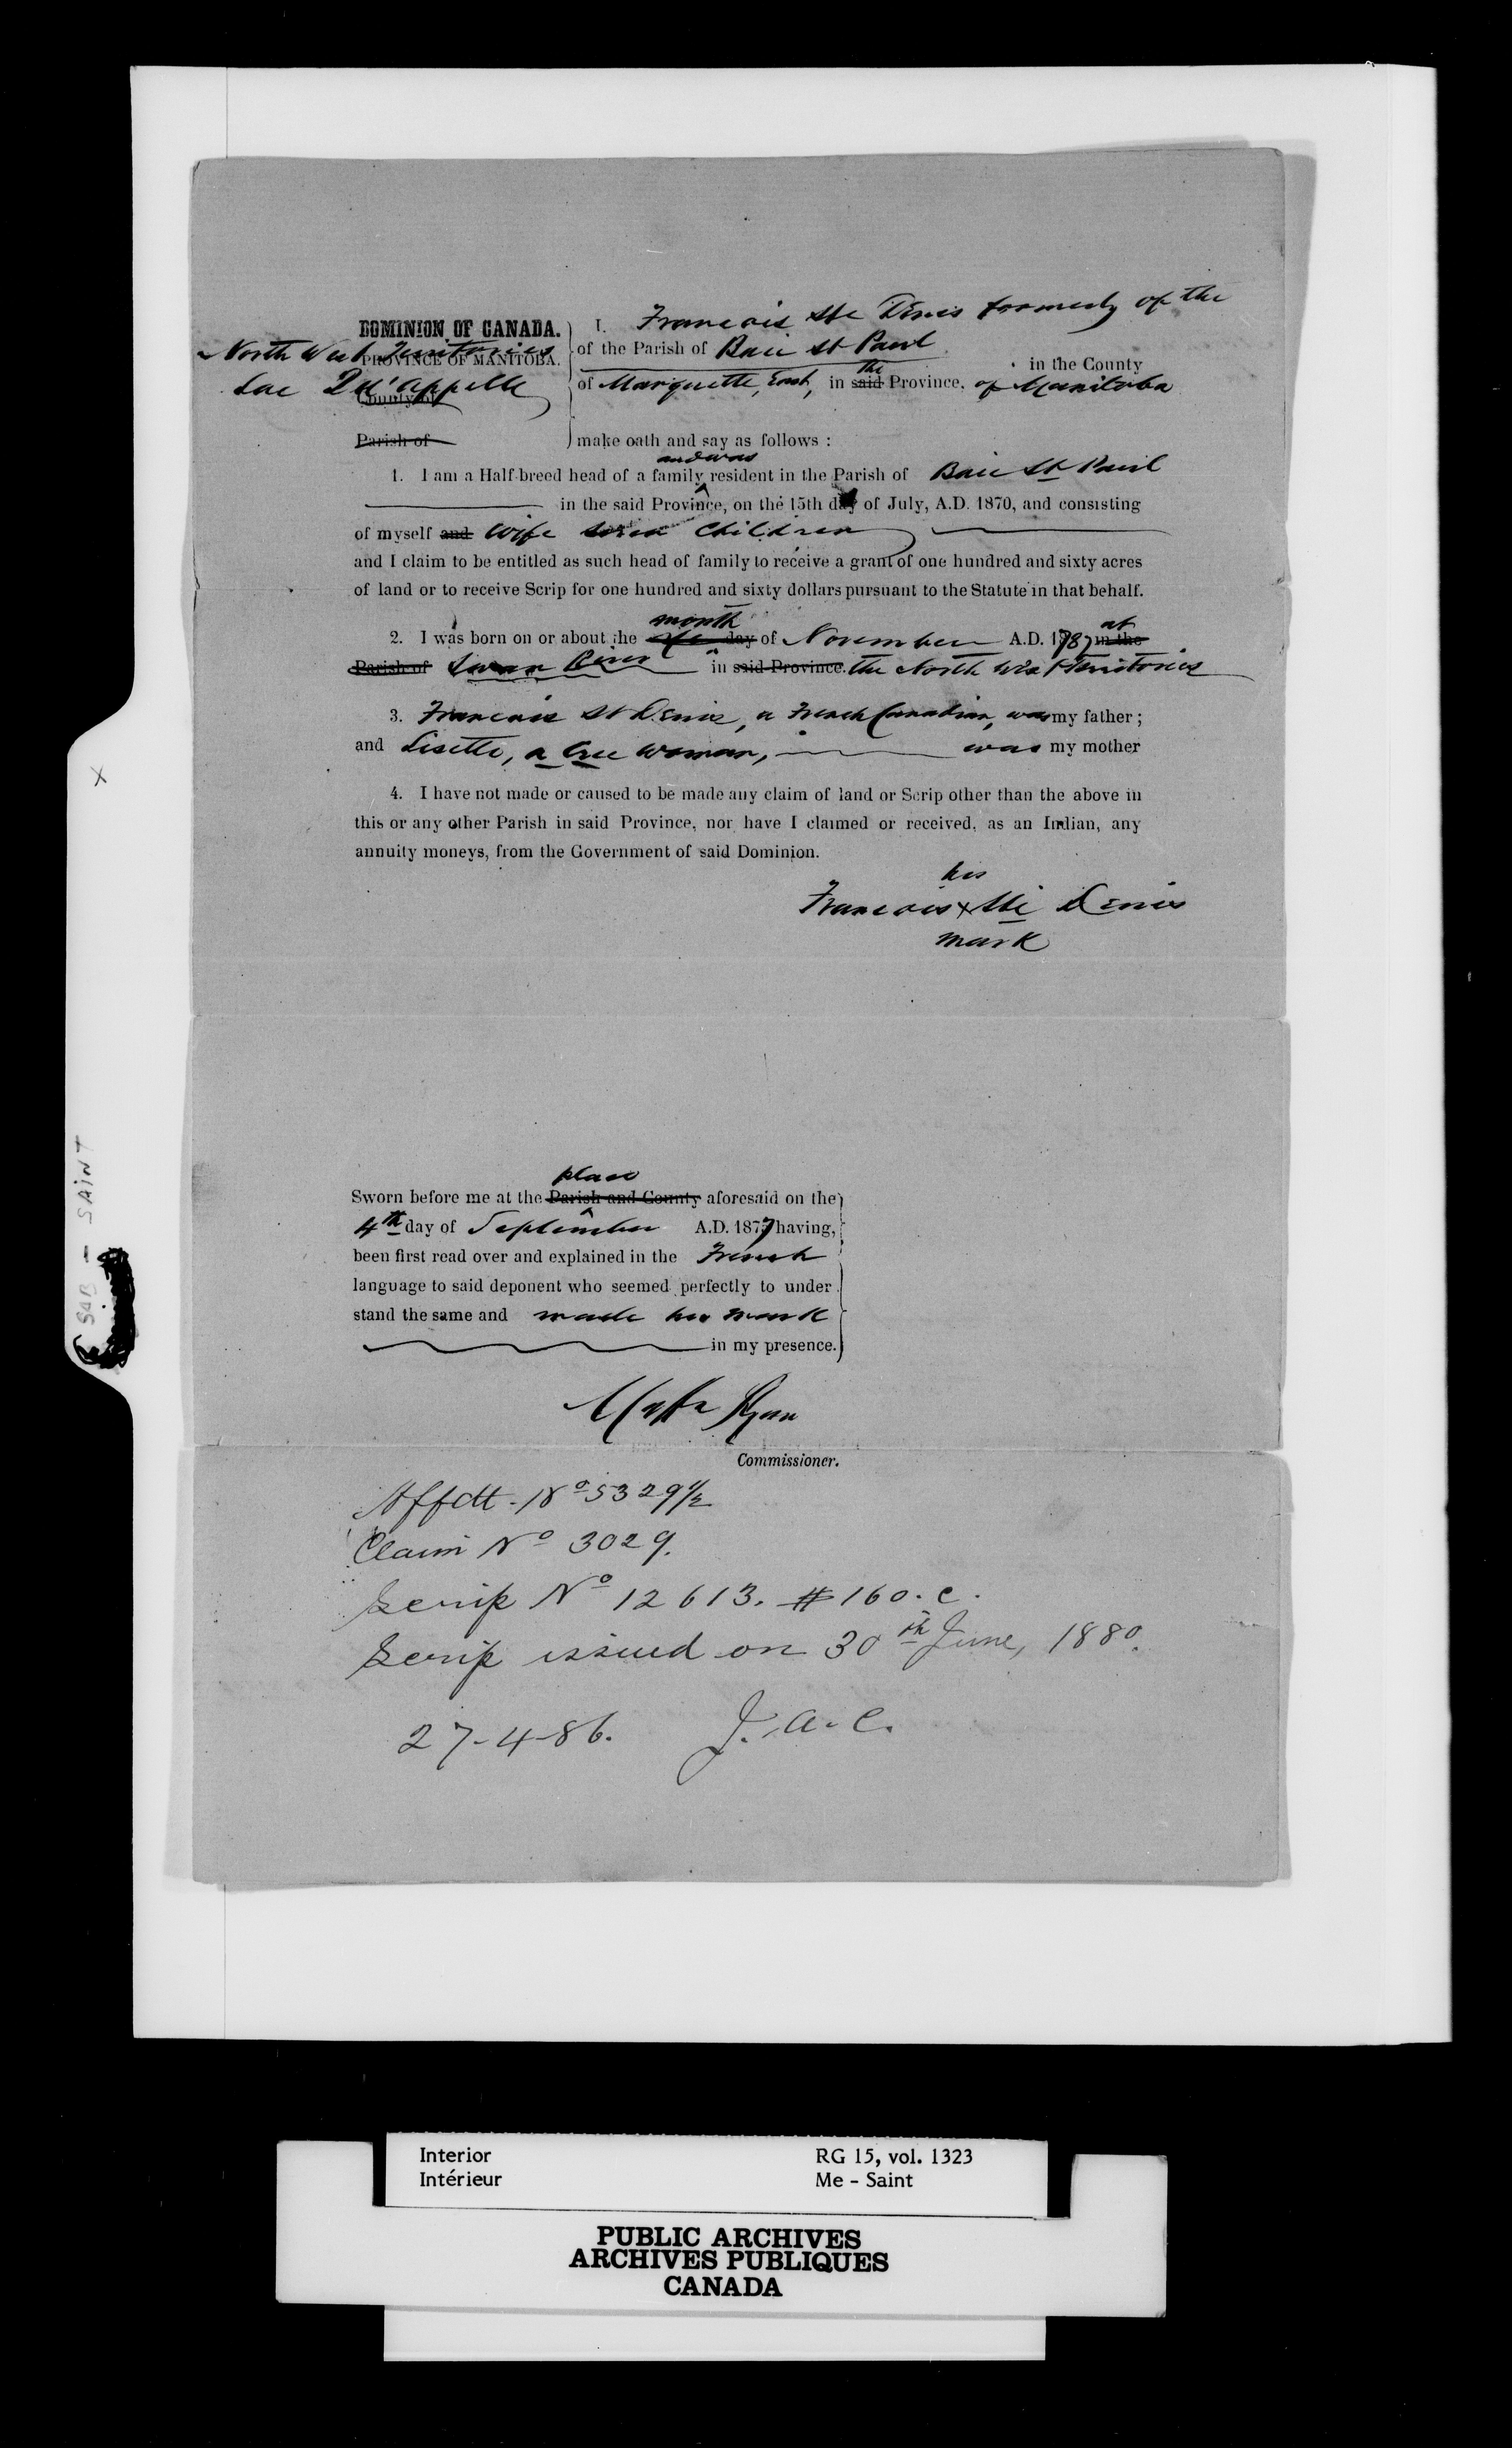 DOMINION OF CANADA.
PROVINCE OF MANITOBA.
North West Territories
Lac Qu'appelle
County of
Parish of
I. Francois Ste Denis formerly of the
of the Parish of Baie St Paul
in the County
of Marquette, East, in said the Province, of Manitoba
make oath and say as follows :
and was
1. I am a Half-breed head of a family resident in the Parish of Baie St Paul
in the said Province, on the 15th day of July, A.D. 1870, and consisting
of myself and wife children
and I claim to be entitled as such head of family to receive a grant of one hundred and sixty acres
of land or to receive Scrip for one hundred and sixty dollars pursuant to the Statute in that behalf.
month at
2. I was born on or about the day of November A.D. 1787 in the
Parish of Swan River in said Province. the North West Territories
3. Francois St Denis, a French Canadian, was my father ;
and Lisette, a Cree woman, was my mother
4. I have not made or caused to be made any claim of land or Scrip other than the above in
this or any other Parish in said Province, nor have I claimed or received, as an Indian, any
annuity moneys, from the Government of said Dominion.
his
Francois x Ste Denis
mark
place
Sworn before me at the Parish and County aforesaid on the
4th day of September A.D. 1877 having,
been first read over and explained in the French
language to said deponent who seemed perfectly to under
stand the same and made his mark
in my presence.
Matt Ryan
Commissioner.
Affdt. No 5329 1/2
Claim No 3029.
Scrip No 12613. $160. c.
Scrip issued on 30th June, 1880.
27-4-86. J. A. C.
SAB - SAINT
X
Interior RG 15, vol. 1323
Intérieur Me - Saint
PUBLIC ARCHIVES
ARCHIVES PUBLIQUES
CANADA